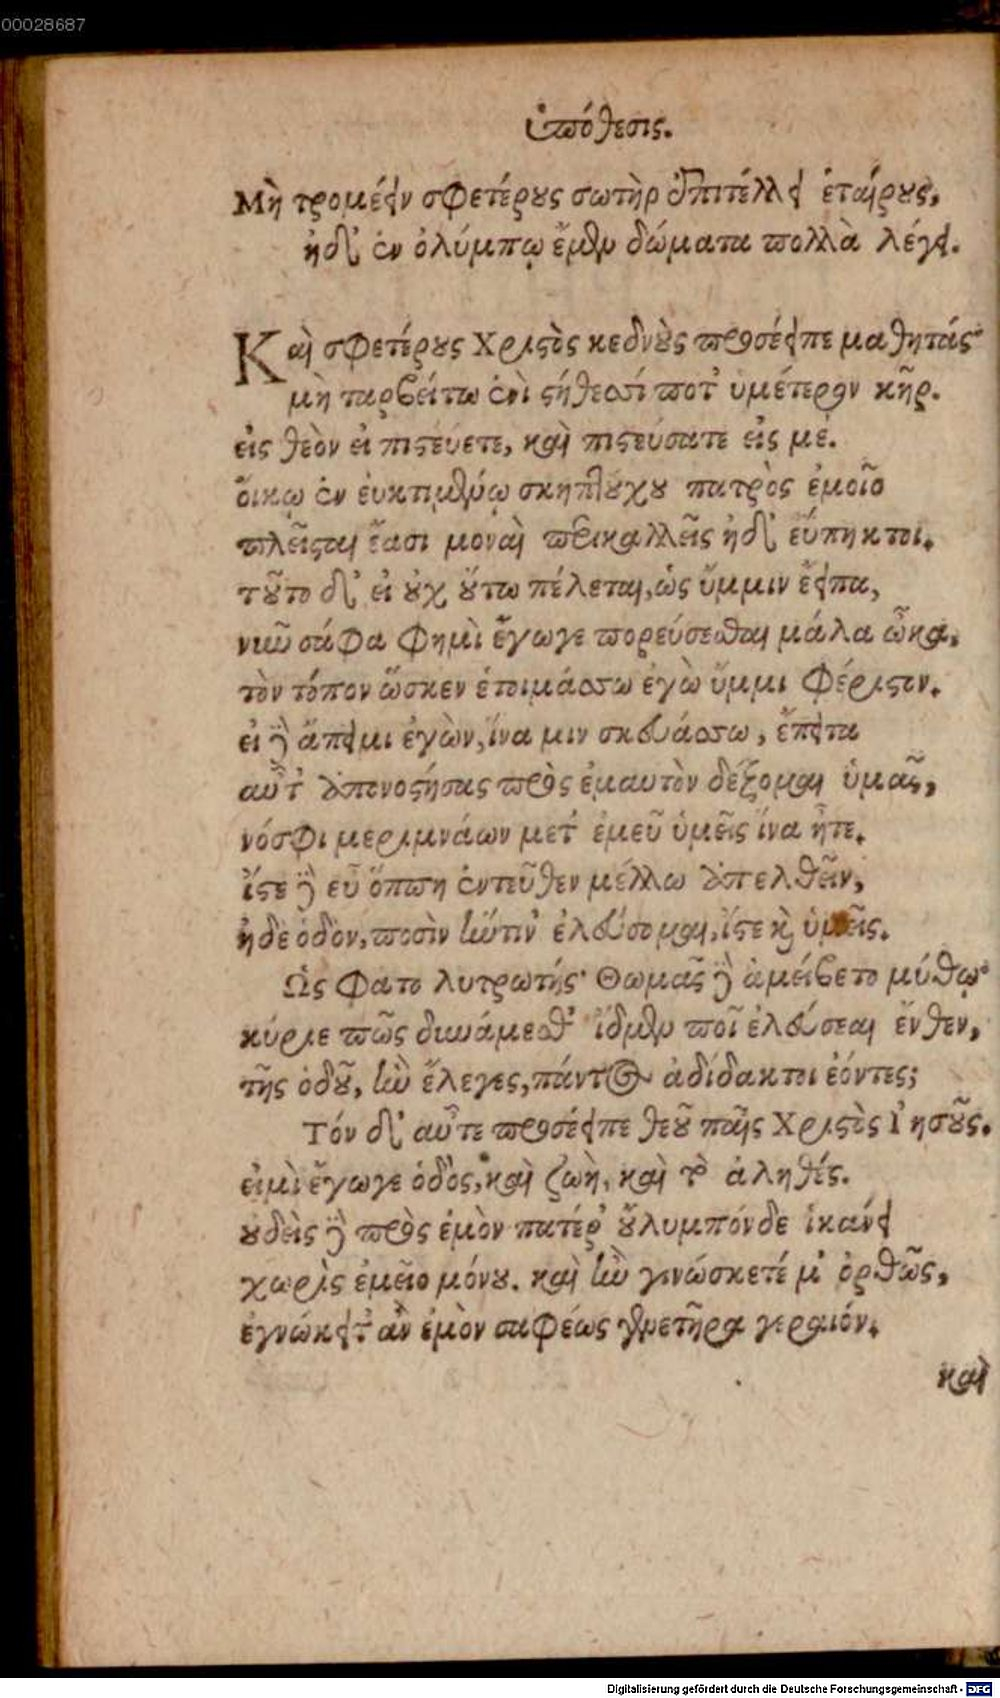 00028687
ὑπόθεσις.
Μὴ τρομέειν σφετέρους σωτὴρ ἐπιτέλλει ἑταίρους,
ἠδ' ἐν ὀλύμπῳ ἔμεν δώματα πολλὰ λέγει.
Καὶ σφετέρους Χριστὸς κεδνοὺς προσέειπε μαθητάς·
μὴ ταρβείτω ἐνὶ στήθεσί ποτ' ὑμέτερον κῆρ.
εἰς θεὸν εἰ πιστεύετε, καὶ πιστεύσατε εἰς μέ.
ὄικῳ ἐν ἐυκτιμένῳ σκηπτούχου πατρὸς ἐμοῖο
πλεῖσται ἔασι μοναὶ περικαλλεῖς ἠδ' εὔπηκτοι.
τοῦτο δ' εἰ οὐχ οὕτω πέλεται, ὡς ὔμμιν ἔειπα,
νῦν σάφα φημὶ ἔγωγε πορεύσεσθαι μάλα ὦκα,
τὸν τόπον ὥσκεν ἑτοιμάσσω ἐγὼ ὔμμι φέριστον.
εἰ δὲ ἄπειμι ἐγὼν, ἵνα μιν σκευάσσω, ἔπειτα
αὖτ' ἀπονοστήσας πρὸς ἐμαυτὸν δέξομαι ὑμᾶς,
νόσφι μεριμνάων μετ' ἐμεῦ ὑμεῖς ἵνα ἦτε.
ἴστε δὲ εὖ ὅππη ἐντεῦθεν μέλλω ἀπελθεῖν,
ἠδὲ ὁδὸν, ποσὶν ἥντιν' ἐλεύσομαι, ἴστε καὶ ὑμεῖς.
Ὣς φατο λυτρωτής· Θωμᾶς δὲ ἀμείβετο μύθῳ·
κύριε πῶς δυνάμεσθ' ἴδμεν ποῖ ἐλεύσεαι ἔνθεν,
τῆς ὁδοῦ, ἣν ἔλεγες, πάντος ἀδίδακτοι ἐόντες;
Τόν δ' αὖτε προσέειπε θεοῦ παῖς Χριστὸς Ἰησοῦς.
εἰμὶ ἔγωγε ὁδὸς, καὶ ζωὴ, καὶ τὸ ἀληθές.
οὐδεὶς δὲ πρὸς ἐμὸν πατέρ' οὔλυμπόνδε ἱκάνει
χωρὶς ἐμεῖο μόνου. καὶ ἢν γινώσκετέ μ' ὀρθῶς,
ἐγνώκειτ' ἂν ἐμὸν σαφέως γενετῆρα γεραιόν.
καὶ
Digitalisierung gefördert durch die Deutsche Forschungsgemeinschaft - DFG